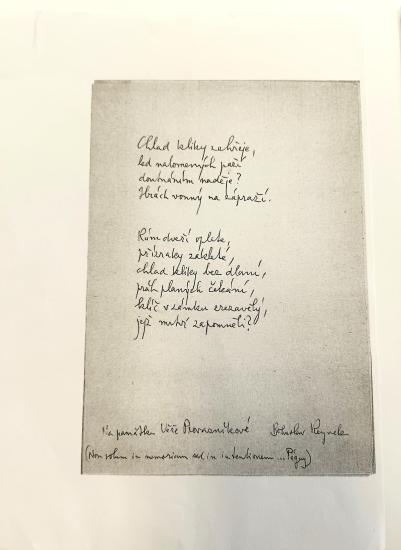 Chlad kliky zahřeje,
led nalomených paží
doutnáním naděje?
Hrách vonný na zápraží.
Rám dveří oplete,
přízraky zakleté,
chlad kliky bez dlaní,
práh planých čekání,
klíč v zámku zrezavělý,
jejž mrtví zapomněli?
Na památku Věře Bohuslav Reynek
(Non solum in memoriam sed in intentionem ... Péguy)